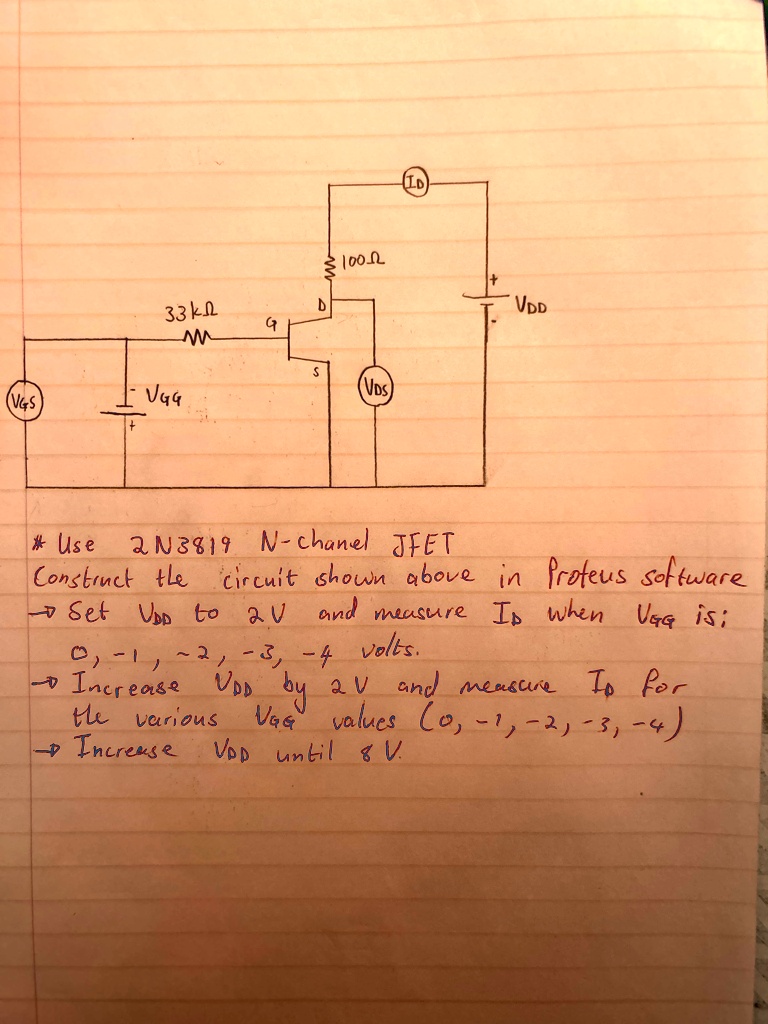 ID
100Ω
+
VDD
-
33kΩ
G
D
S
VGS
- VGG
+
VDS
* Use 2N3819 N-chanel JFET
Construct the circuit shown above in Proteus software
→ Set VDD to 2V and measure ID when VGG is;
0, -1, -2, -3, -4 volts.
→ Increase VDD by 2V and measure ID for
the various VGG values (0, -1, -2, -3, -4)
→ Increase VDD until 8 V.